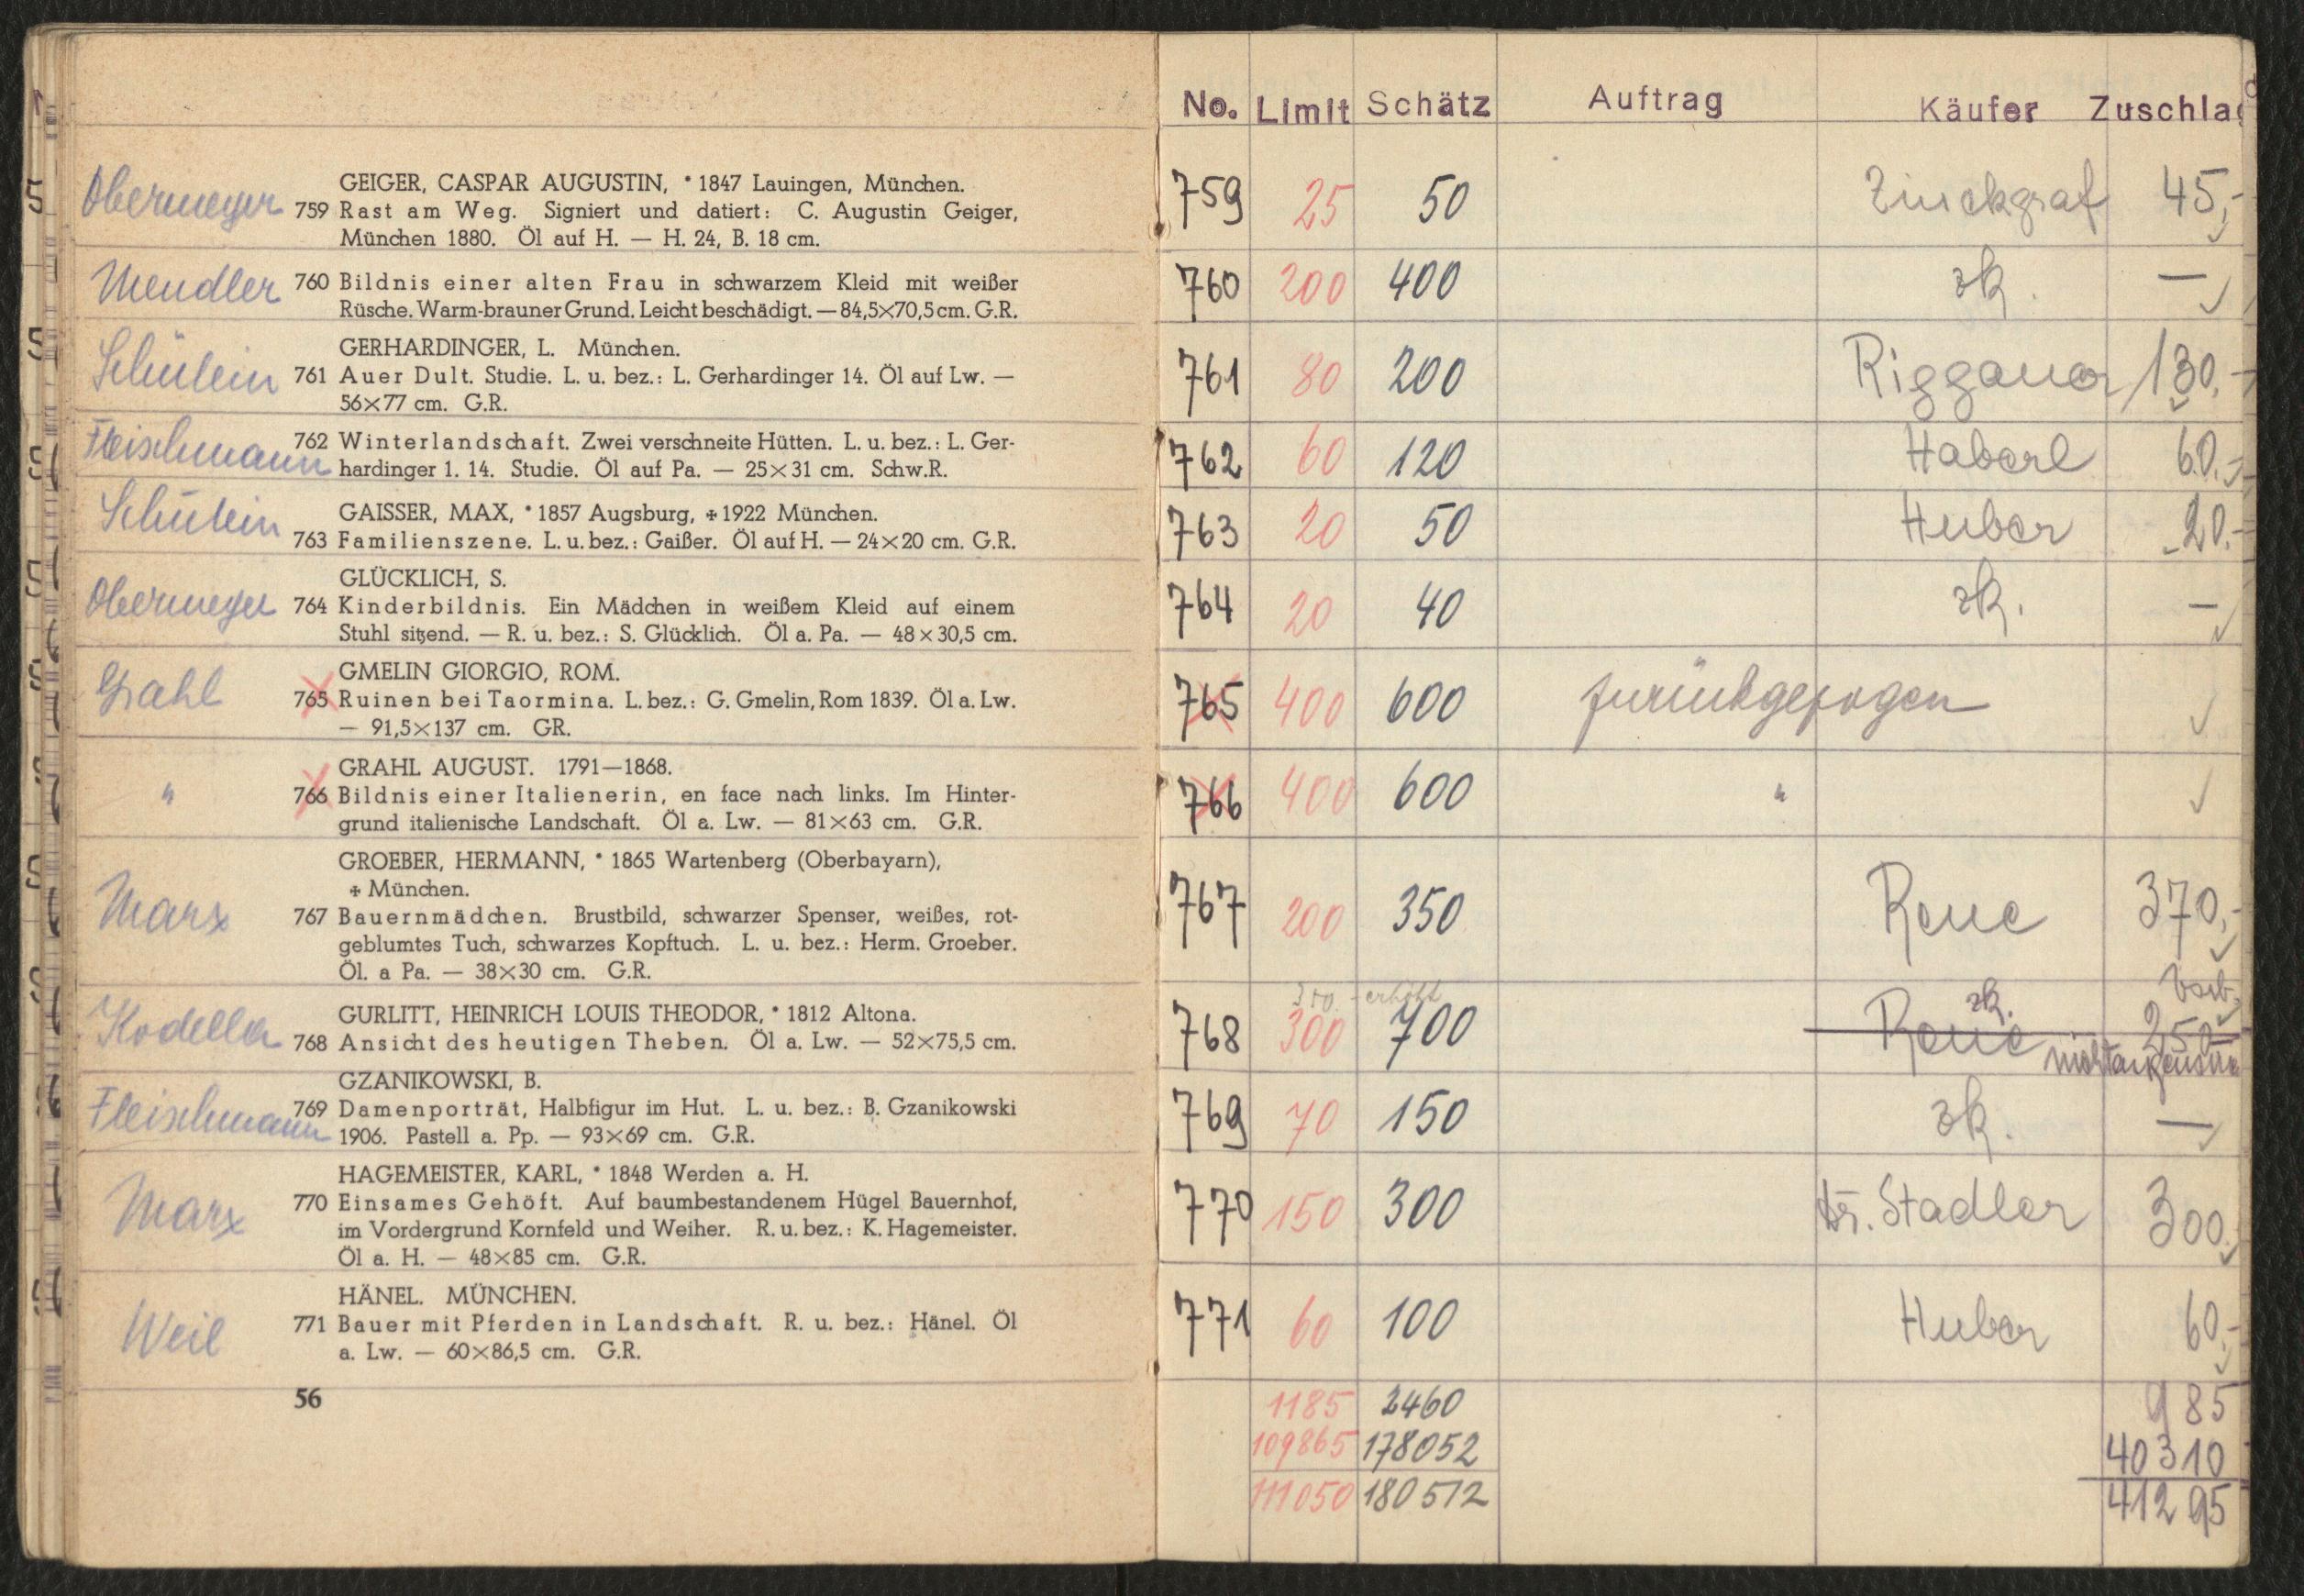 GEIGER, CASPAR AUGUSTIN, * 1847 Lauingen, München.
Obermeyer 759 Rast am Weg. Signiert und datiert: C. Augustin Geiger,
München 1880. Öl auf H. — H. 24, B. 18 cm.
Mendler 760 Bildnis einer alten Frau in schwarzem Kleid mit weißer
Rüsche. Warm-brauner Grund. Leicht beschädigt. — 84,5×70,5 cm. G.R.
GERHARDINGER, L. München.
Schülein 761 Auer Dult. Studie. L. u. bez.: L. Gerhardinger 14. Öl auf Lw. —
56×77 cm. G.R.
Fleischmann 762 Winterlandschaft. Zwei verschneite Hütten. L. u. bez.: L. Ger-
hardinger 1. 14. Studie. Öl auf Pa. — 25×31 cm. Schw.R.
Schülein GAISSER, MAX, * 1857 Augsburg, ✠ 1922 München.
763 Familienszene. L. u. bez.: Gaißer. Öl auf H. — 24×20 cm. G.R.
GLÜCKLICH, S.
Obermeyer 764 Kinderbildnis. Ein Mädchen in weißem Kleid auf einem
Stuhl sitzend. — R. u. bez.: S. Glücklich. Öl a. Pa. — 48×30,5 cm.
GMELIN GIORGIO, ROM.
Grahl 765 Ruinen bei Taormina. L. bez.: G. Gmelin, Rom 1839. Öl a. Lw.
— 91,5×137 cm. GR.
GRAHL AUGUST. 1791—1868.
" 766 Bildnis einer Italienerin, en face nach links. Im Hinter-
grund italienische Landschaft. Öl a. Lw. — 81×63 cm. G.R.
GROEBER, HERMANN, * 1865 Wartenberg (Oberbayarn),
✠ München.
Marx 767 Bauernmädchen. Brustbild, schwarzer Spenser, weißes, rot-
geblumtes Tuch, schwarzes Kopftuch. L. u. bez.: Herm. Groeber.
Öl. a Pa. — 38×30 cm. G.R.
GURLITT, HEINRICH LOUIS THEODOR, * 1812 Altona.
Kodella 768 Ansicht des heutigen Theben. Öl a. Lw. — 52×75,5 cm.
GZANIKOWSKI, B.
Fleischmann 769 Damenporträt, Halbfigur im Hut. L. u. bez.: B. Gzanikowski
1906. Pastell a. Pp. — 93×69 cm. G.R.
HAGEMEISTER, KARL, * 1848 Werden a. H.
Marx 770 Einsames Gehöft. Auf baumbestandenem Hügel Bauernhof,
im Vordergrund Kornfeld und Weiher. R. u. bez.: K. Hagemeister.
Öl a. H. — 48×85 cm. G.R.
HÄNEL. MÜNCHEN.
Weil 771 Bauer mit Pferden in Landschaft. R. u. bez.: Hänel. Öl
a. Lw. — 60×86,5 cm. G.R.
56
No. Limit Schätz Auftrag Käufer Zuschlag
759 25 50 Zinckgraf 45,-
760 200 400 zk. —
761 80 200 Riggauer 130.-
762 60 120 Haberl 60.-
763 20 50 Huber 20.-
764 20 40 zk. —
765 400 600 zurückgezogen
766 400 600 "
767 200 350 Reue 370,-
350.- erhöht zk.
768 300 700 Reue 250
769 70 150 zk. —
770 150 300 Dr. Stadler 300.
771 60 100 Huber 60,-
1185 2460 985
109865 178052 40310
111050 180512 41295